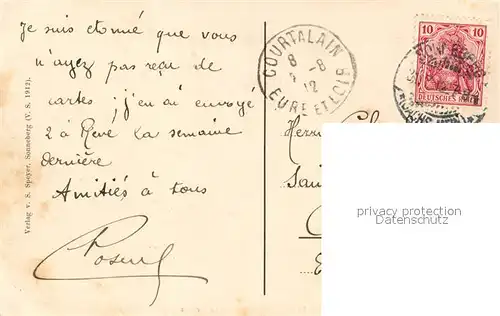 Je suis etonné que vous
n'ayez pas reçu de
cartes, j'en ai envoyé
2 à René la semaine
dernière
Amitiés à tous
Verlag v. S. Spoyer, Sonneberg (V. S. 1912).
COURTALAIN
8 -8
12
EURE ET LOIR
10 10
DEUTSCHES REICH
Herrn
privacy protection